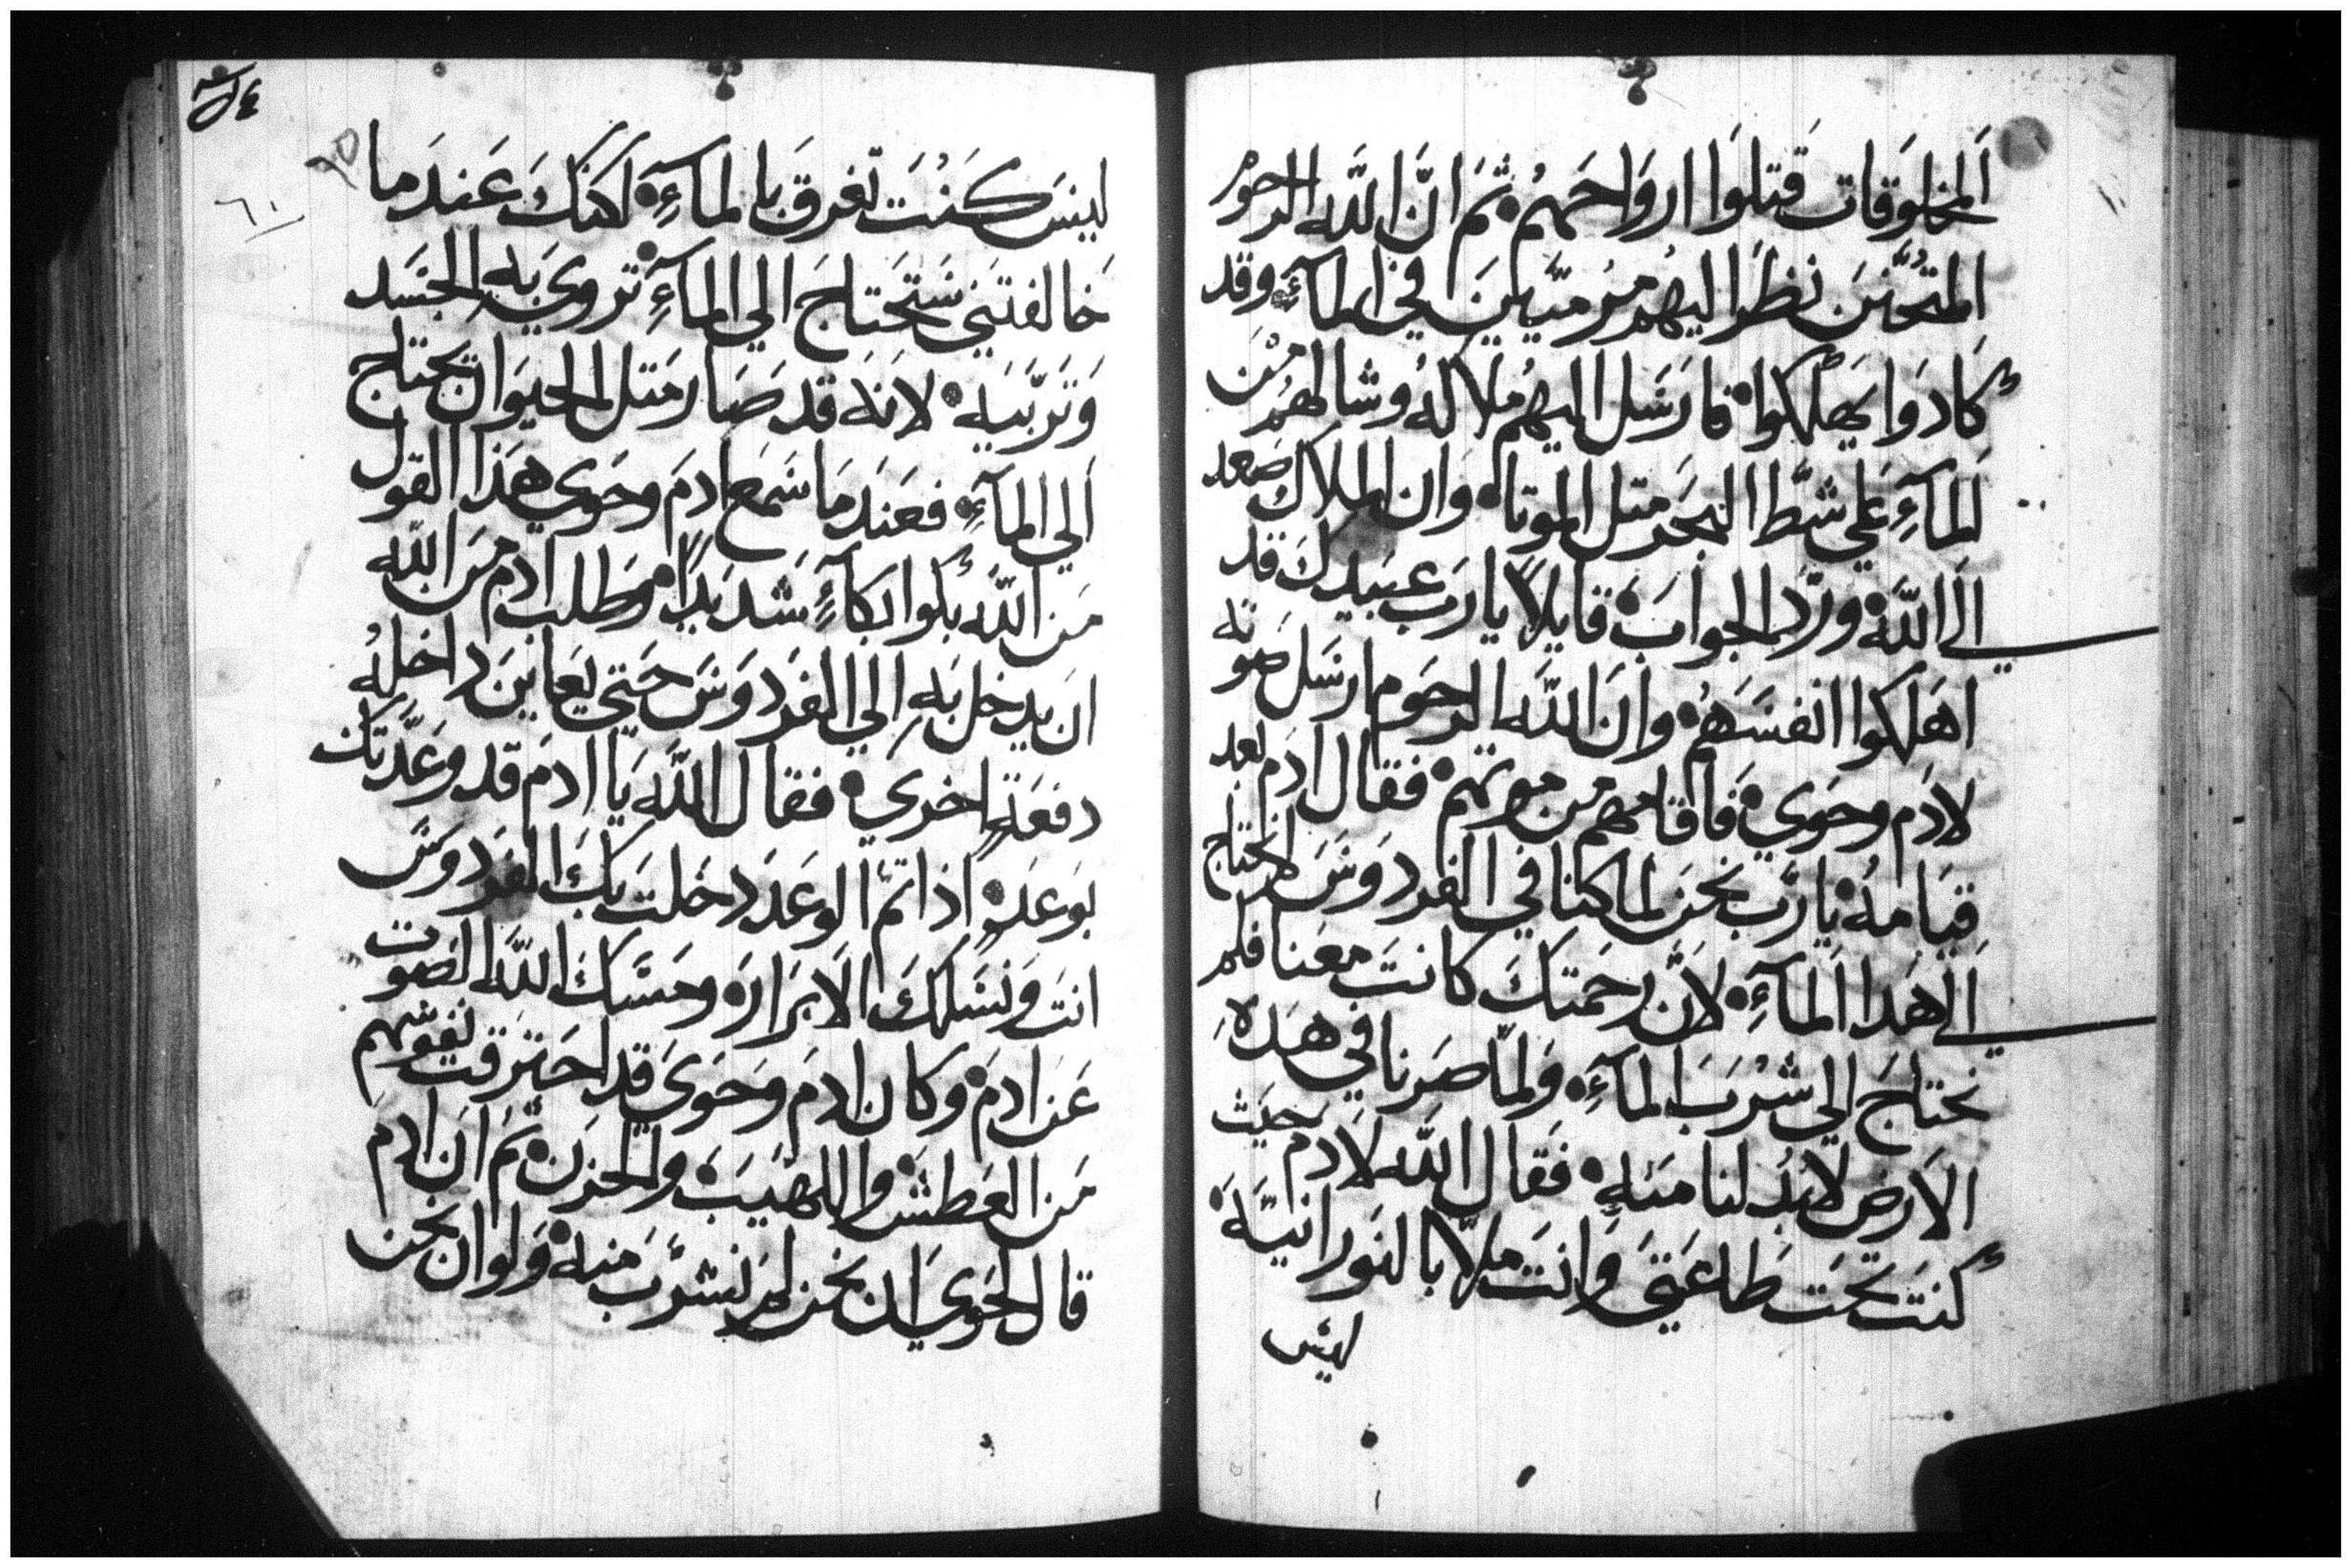 المخلوقات قتلوا ارواحهم ثم ان الله الرحوم
المتحنن نظر اليهم مرميين في الماء وقد
كادوا يهلكوا فارسل اليهم ملاكه وشالهم من
الماء علي شط البحر متل الموتا وان الملاك صعد
الي الله ورد الجواب قايلا يا رب عبيدك قد
اهلكوا انفسهم وان الله الرحوم ارسل صوته
لادم وحوي فاقامهم من موتهم فقال ادم بعد
قيامه يا رب نحن لما كنا في الفردوس لم نحتاج
الي هدا الماء لان رحمتك كانت معنا فلم
نحتاج الي شرب الماء ولما صرنا في هده
الارض لابد لنا منه فقال الله لادم حيث
كنت تحت طاعتي وانت ملا بالنورانية
ليس
ليس كنت تغرق بالماء لكنك عندما
خالفتني ستحتاج الي الماء تروي به الجسد
وتربيه لانه قد صار متل الحيوان يحتاج
الي الماء فعندما سمع ادم وحوي هذا القول
من الله بكوا بكاء شديدا وطلب ادم من الله
ان يدخل به الي الفردوس حتي يعاين داخله
دفعة اخري فقال الله يا ادم قد وعدتك
بوعد اذا تم الوعد دخلت بك الفردوس
انت ونسلك الابرار ومسك الله الصوت
عن ادم وكان ادم وحوي قد احترقت نفوسهم
من العطش واللهيب والحزن ثم ان ادم
قال لحوي ان نحن لم نشرب منه ولو ان نحن
٦٠